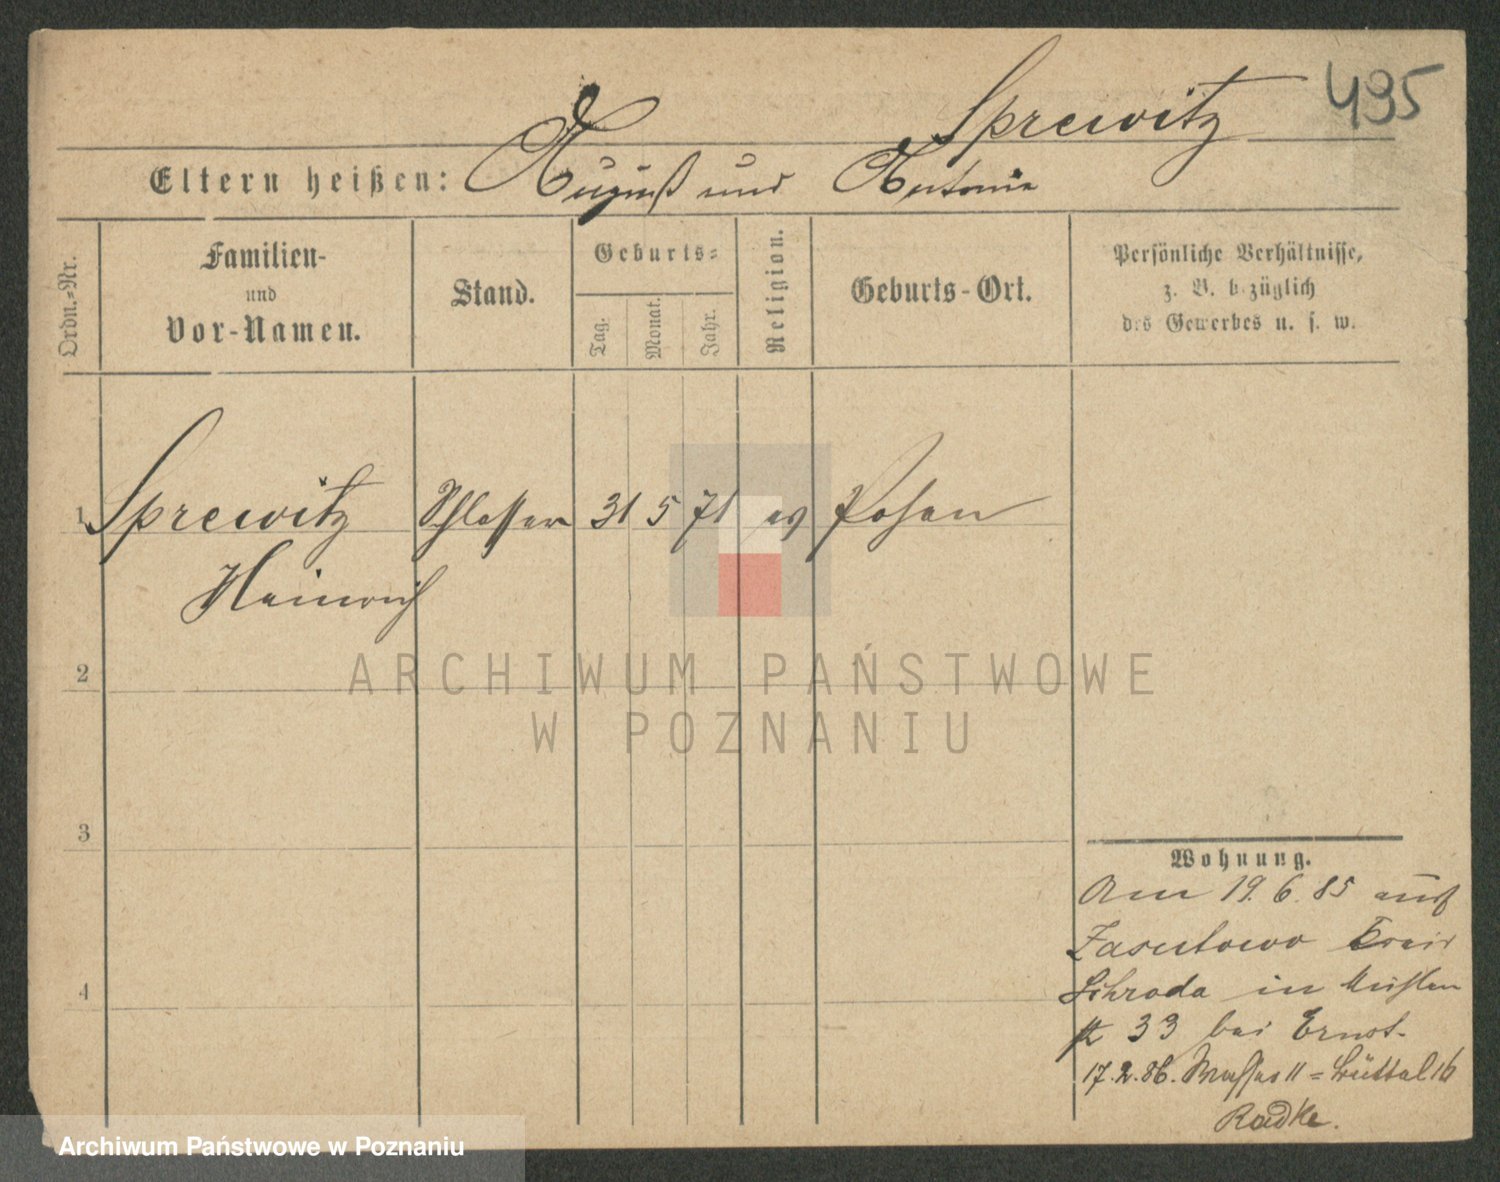 Sprewitz 495
Eltern heißen: August und Antonie
Ordn.-Nr.
Familien-
und
Vor-Namen.
Stand.
Geburts-
Tag.
Monat.
Jahr.
Religion.
Geburts-Ort.
Persönliche Verhältnisse,
z. B. bezüglich
des Gewerbes u. s. w.
1 Sprewitz Schlosser 31 5 71 ev Posen
Heinrich
2
3
4
Wohnung.
Am 19.6.85 auf
Zasutowo Kreis
Schroda in Mühlen
st 33 bei Ernst.
17.2.86. 11 = 16
Radke.
ARCHIWUM PAŃSTWOWE
W POZNANIU
Archiwum Państwowe w Poznaniu